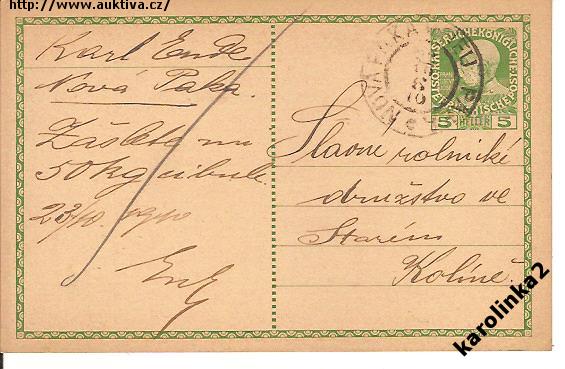 http://www.auktiva.cz/
Karl Ende
Nová Paka.
Zašlete mi
50 kg cibule
23/10 1910
Ende
NOVÁ PAKA NEU PAKA
KAISERLICHE KÖNIGLICHE ÖSTERREICHISCHE
5 HELLER 5
Slavné rolnické
družstvo ve
Starém
Kolíně.
karolinka2